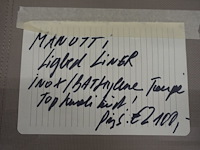 MANUTTI
Ligbed LINER
INOX/BATHYLENE Taupe
Top kwaliteit!
Prijs: €2100,-